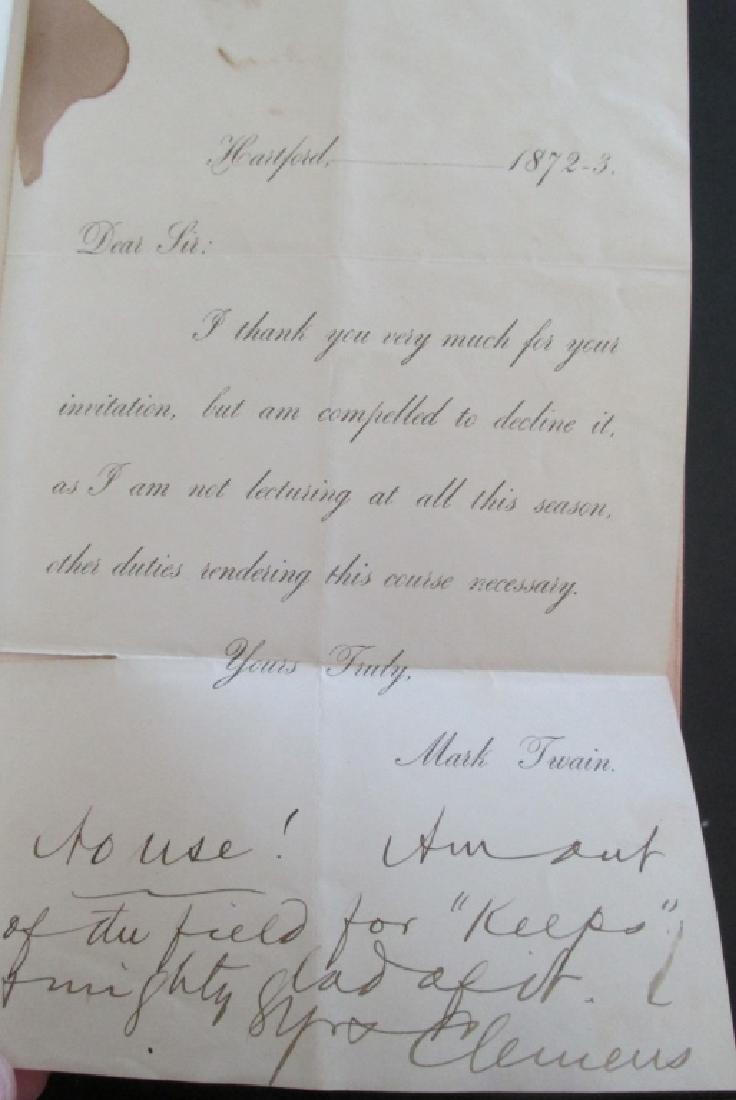 Hartford, 1872-3.
Dear Sir:
I thank you very much for your
invitation, but am compelled to decline it,
as I am not lecturing at all this season,
other duties rendering this course necessary.
Yours Truly,
Mark Twain.
No use! Am out
of the field for "Keeps"
& mighty glad of it.
Yrs
Clemens